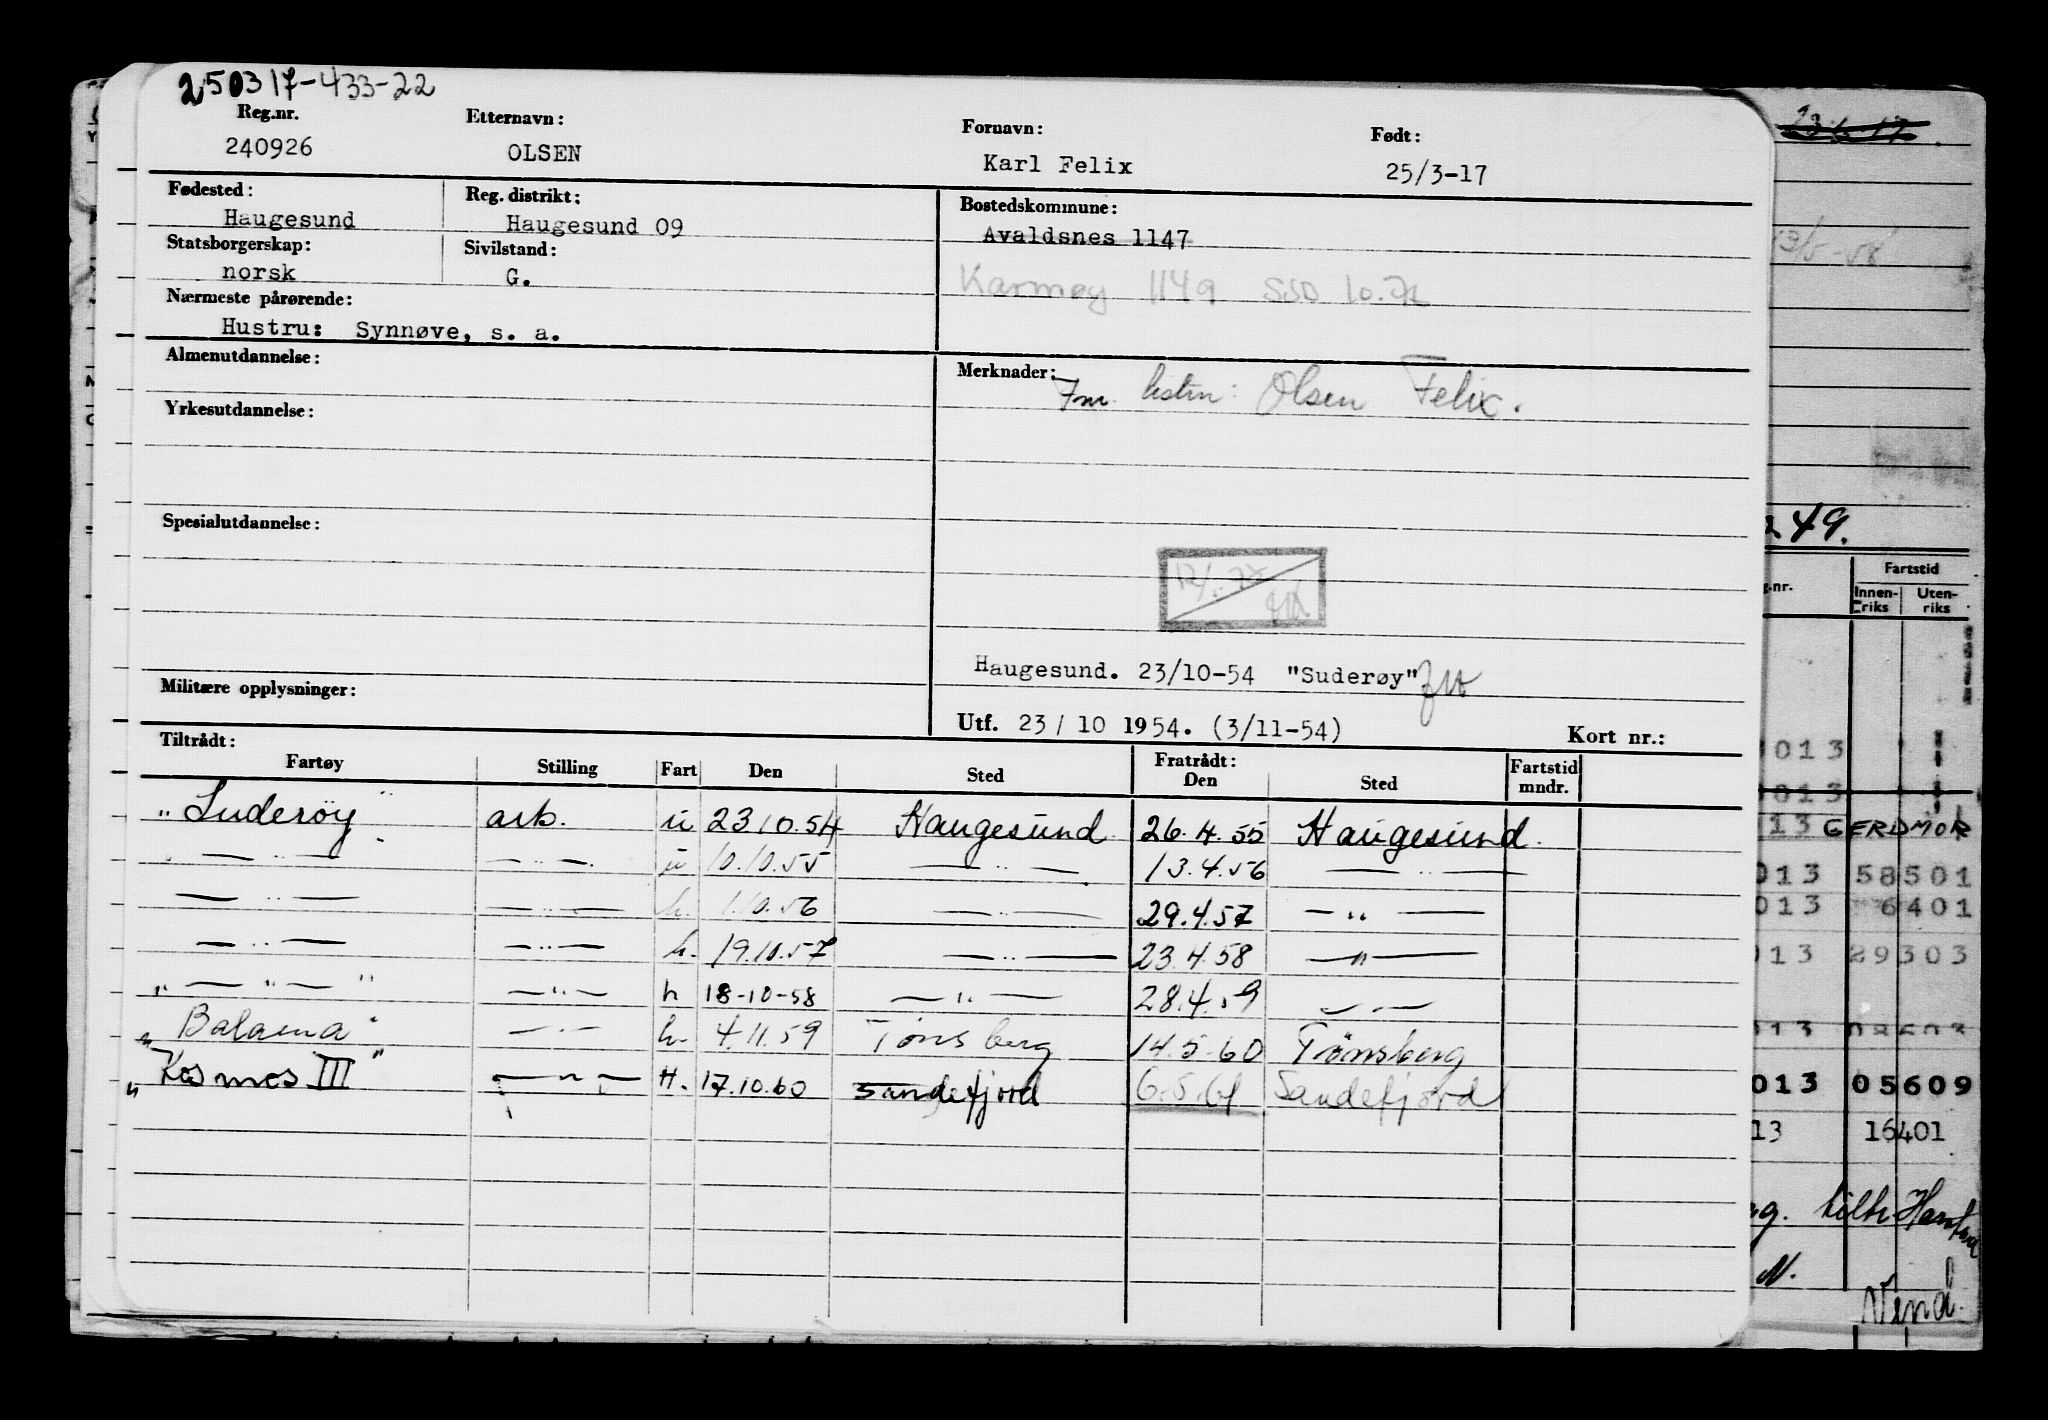 250317-433-22
Reg.nr. Etternavn: Fornavn: Født:
240926 OLSEN Karl Felix 25/3-17
Fødested: Reg. distrikt: Bostedskommune:
Haugesund Haugesund 09 Avaldsnes 1147
Statsborgerskap: Sivilstand:
norsk G. Karmøy 1149 SSD 10.71
Nærmeste pårørende:
Hustru: Synnøve, s. a.
Almenutdannelse: Merknader:
Olsen Felix.
Yrkesutdannelse:
Spesialutdannelse:
Haugesund. 23/10-54 "Suderøy"
Militære opplysninger:
Utf. 23/ 10 1954. (3/11-54) Kort nr.:
Tiltrådt: Fratrådt:
Fartøy Stilling Fart Den Sted Den Sted Fartstid mndr.
"Suderøy" arb. u 23.10.54 Haugesund 26.4.55 Haugesund.
— " — — " — u 10.10.55 — " — 13.4.56 — " —
— " — — " — h. 1.10.56 — " — 29.4.57 — " —
— " — — " — h. 19.10.57 — " — 23.4.58 — " —
" — " — " — " — h 18-10-58 — " — 28.4.59 — " —
"Balaena" — " — h. 4.11.59 Tønsberg 14.5.60 Tønsberg
"Kosmos III" — " — H. 17.10.60 Sandefjord 6.5.61 Sandefjord
249.
Fartstid
Innenriks Utenriks
013
013
13 GERDMOR
013 58501
013 6401
013 29303
013 08603
013 05609
13 16401
N.
Vend.